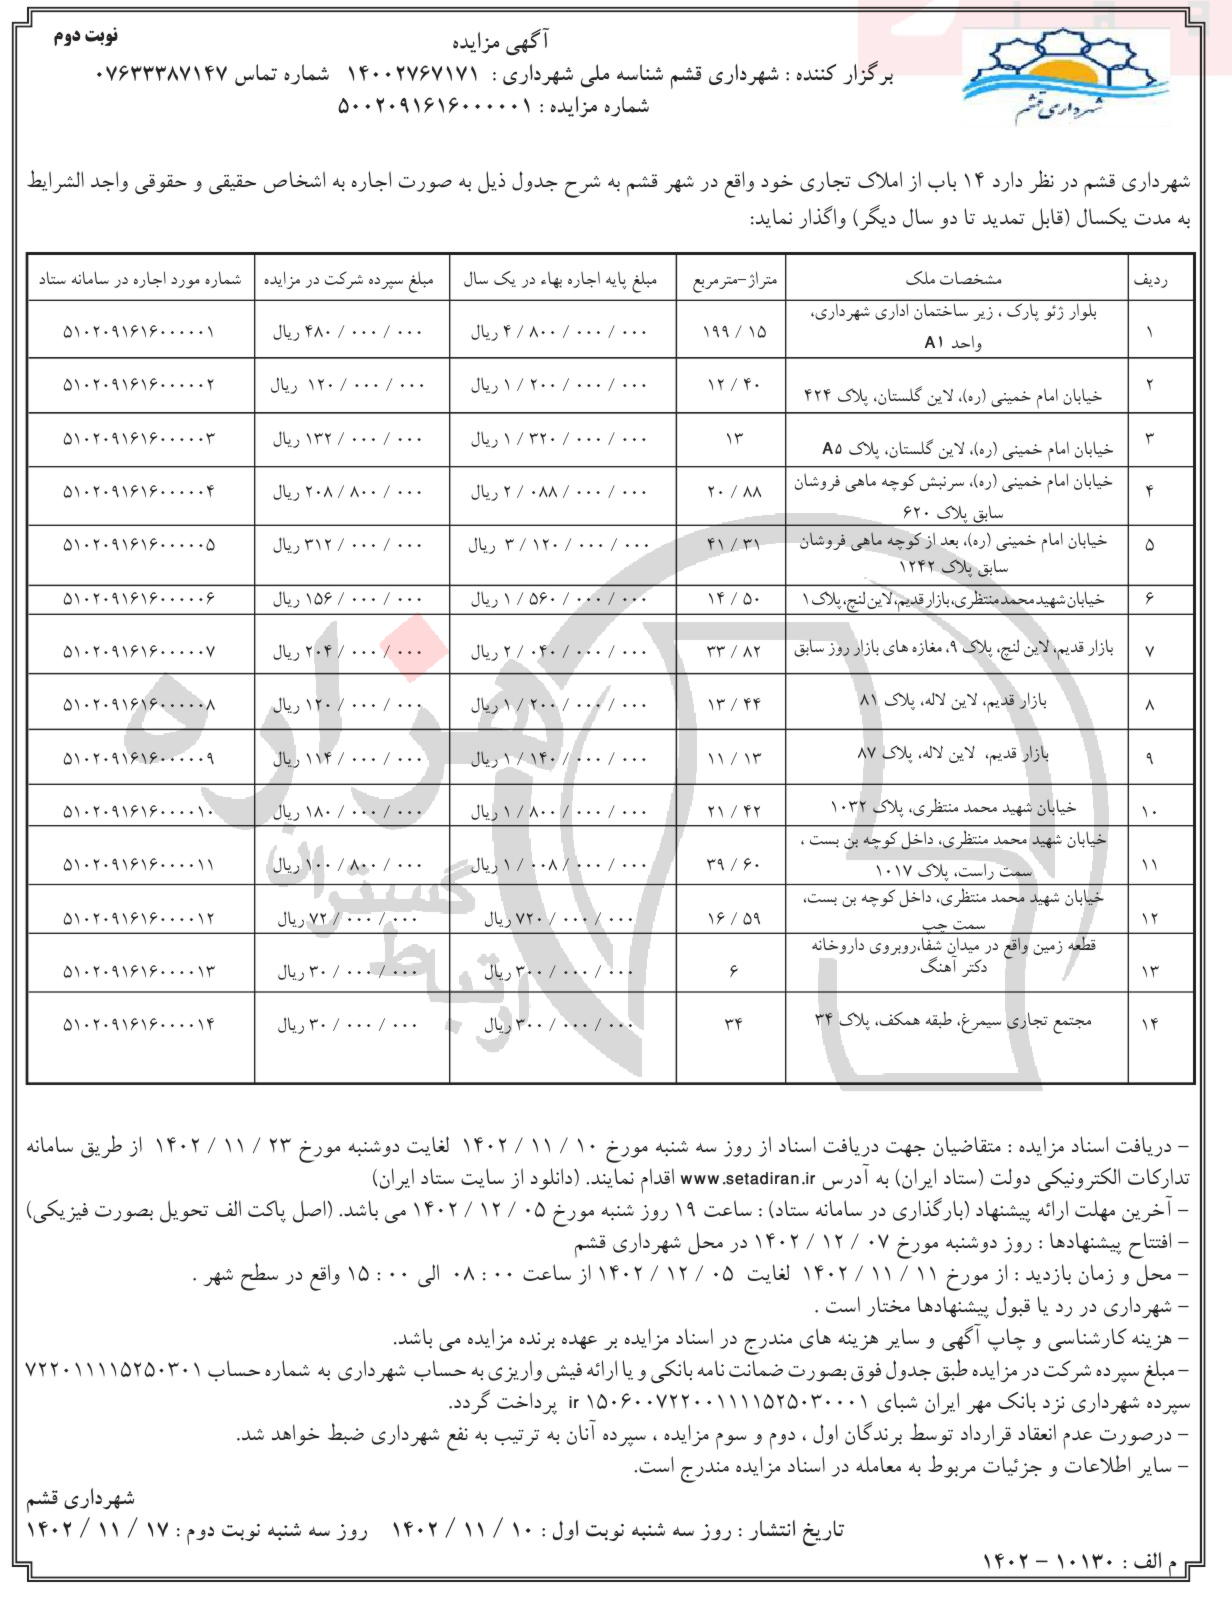 نوبت دوم
آگهی مزایده
برگزار کننده : شهرداری قشم شناسه ملی شهرداری : ۱۴۰۰۲۷۶۷۱۷۱ شماره تماس ۰۷۶۳۳۳۸۷۱۴۷
شماره مزایده : ۵۰۰۲۰۹۱۶۱۶۰۰۰۰۰۱
شهرداری قشم
شهرداری قشم در نظر دارد ۱۴ باب از املاک تجاری خود واقع در شهر قشم به شرح جدول ذیل به صورت اجاره به اشخاص حقیقی و حقوقی واجد الشرایط
به مدت یکسال (قابل تمدید تا دو سال دیگر) واگذار نماید:
ردیف مشخصات ملک متراژ-مترمربع مبلغ پایه اجاره بهاء در یک سال مبلغ سپرده شرکت در مزایده شماره مورد اجاره در سامانه ستاد
۱ بلوار ژئو پارک ، زیر ساختمان اداری شهرداری، واحد A۱ ۱۹۹ / ۱۵ ۴ / ۸۰۰ / ۰۰۰ / ۰۰۰ ریال ۴۸۰ / ۰۰۰ / ۰۰۰ ریال ۵۱۰۲۰۹۱۶۱۶۰۰۰۰۰۱
۲ خیابان امام خمینی (ره)، لاین گلستان، پلاک ۴۲۴ ۱۲ / ۴۰ ۱ / ۲۰۰ / ۰۰۰ / ۰۰۰ ریال ۱۲۰ / ۰۰۰ / ۰۰۰ ریال ۵۱۰۲۰۹۱۶۱۶۰۰۰۰۰۲
۳ خیابان امام خمینی (ره)، لاین گلستان، پلاک A۵ ۱۳ ۱ / ۳۲۰ / ۰۰۰ / ۰۰۰ ریال ۱۳۲ / ۰۰۰ / ۰۰۰ ریال ۵۱۰۲۰۹۱۶۱۶۰۰۰۰۰۳
۴ خیابان امام خمینی (ره)، سرنبش کوچه ماهی فروشان سابق پلاک ۶۲۰ ۲۰ / ۸۸ ۲ / ۰۸۸ / ۰۰۰ / ۰۰۰ ریال ۲۰۸ / ۸۰۰ / ۰۰۰ ریال ۵۱۰۲۰۹۱۶۱۶۰۰۰۰۰۴
۵ خیابان امام خمینی (ره)، بعد از کوچه ماهی فروشان سابق پلاک ۱۲۴۲ ۴۱ / ۳۱ ۳ / ۱۲۰ / ۰۰۰ / ۰۰۰ ریال ۳۱۲ / ۰۰۰ / ۰۰۰ ریال ۵۱۰۲۰۹۱۶۱۶۰۰۰۰۰۵
۶ خیابان شهید محمد منتظری، بازار قدیم، لاین لنج، پلاک ۱ ۱۴ / ۵۰ ۱ / ۵۶۰ / ۰۰۰ / ۰۰۰ ریال ۱۵۶ / ۰۰۰ / ۰۰۰ ریال ۵۱۰۲۰۹۱۶۱۶۰۰۰۰۰۶
۷ بازار قدیم، لاین لنج، پلاک ۹، مغازه های بازار روز سابق ۳۳ / ۸۲ ۲ / ۰۴۰ / ۰۰۰ / ۰۰۰ ریال ۲۰۴ / ۰۰۰ / ۰۰۰ ریال ۵۱۰۲۰۹۱۶۱۶۰۰۰۰۰۷
۸ بازار قدیم، لاین لاله، پلاک ۸۱ ۱۳ / ۴۴ ۱ / ۲۰۰ / ۰۰۰ / ۰۰۰ ریال ۱۲۰ / ۰۰۰ / ۰۰۰ ریال ۵۱۰۲۰۹۱۶۱۶۰۰۰۰۰۸
۹ بازار قدیم، لاین لاله، پلاک ۸۷ ۱۱ / ۱۳ ۱ / ۱۴۰ / ۰۰۰ / ۰۰۰ ریال ۱۱۴ / ۰۰۰ / ۰۰۰ ریال ۵۱۰۲۰۹۱۶۱۶۰۰۰۰۰۹
۱۰ خیابان شهید محمد منتظری، پلاک ۱۰۳۲ ۲۱ / ۴۲ ۱ / ۸۰۰ / ۰۰۰ / ۰۰۰ ریال ۱۸۰ / ۰۰۰ / ۰۰۰ ریال ۵۱۰۲۰۹۱۶۱۶۰۰۰۰۱۰
۱۱ خیابان شهید محمد منتظری، داخل کوچه بن بست ، سمت راست، پلاک ۱۰۱۷ ۳۹ / ۶۰ ۱ / ۰۰۸ / ۰۰۰ / ۰۰۰ ریال ۱۰۰ / ۸۰۰ / ۰۰۰ ریال ۵۱۰۲۰۹۱۶۱۶۰۰۰۰۱۱
۱۲ خیابان شهید محمد منتظری، داخل کوچه بن بست، سمت چپ ۱۶ / ۵۹ ۷۲۰ / ۰۰۰ / ۰۰۰ ریال ۷۲ / ۰۰۰ / ۰۰۰ ریال ۵۱۰۲۰۹۱۶۱۶۰۰۰۰۱۲
۱۳ قطعه زمین واقع در میدان شفا،روبروی داروخانه دکتر آهنگ ۶ ۳۰۰ / ۰۰۰ / ۰۰۰ ریال ۳۰ / ۰۰۰ / ۰۰۰ ریال ۵۱۰۲۰۹۱۶۱۶۰۰۰۰۱۳
۱۴ مجتمع تجاری سیمرغ، طبقه همکف، پلاک ۳۴ ۳۴ ۳۰۰ / ۰۰۰ / ۰۰۰ ریال ۳۰ / ۰۰۰ / ۰۰۰ ریال ۵۱۰۲۰۹۱۶۱۶۰۰۰۰۱۴
هزاره
گستران
ارتباط
– دریافت اسناد مزایده : متقاضیان جهت دریافت اسناد از روز سه شنبه مورخ ۱۰ / ۱۱ / ۱۴۰۲ لغایت دوشنبه مورخ ۲۳ / ۱۱ / ۱۴۰۲ از طریق سامانه
تدارکات الکترونیکی دولت (ستاد ایران) به آدرس www.setadiran.ir اقدام نمایند. (دانلود از سایت ستاد ایران)
– آخرین مهلت ارائه پیشنهاد (بارگذاری در سامانه ستاد) : ساعت ۱۹ روز شنبه مورخ ۰۵ / ۱۲ / ۱۴۰۲ می باشد. (اصل پاکت الف تحویل بصورت فیزیکی)
– افتتاح پیشنهادها : روز دوشنبه مورخ ۰۷ / ۱۲ / ۱۴۰۲ در محل شهرداری قشم
– محل و زمان بازدید : از مورخ ۱۱ / ۱۱ / ۱۴۰۲ لغایت ۰۵ / ۱۲ / ۱۴۰۲ از ساعت ۰۰ : ۰۸ الی ۰۰ : ۱۵ واقع در سطح شهر .
– شهرداری در رد یا قبول پیشنهادها مختار است .
– هزینه کارشناسی و چاپ آگهی و سایر هزینه های مندرج در اسناد مزایده بر عهده برنده مزایده می باشد.
– مبلغ سپرده شرکت در مزایده طبق جدول فوق بصورت ضمانت نامه بانکی و یا ارائه فیش واریزی به حساب شهرداری به شماره حساب ۷۲۲۰۱۱۱۱۵۲۵۰۳۰۱
سپرده شهرداری نزد بانک مهر ایران شبای ir ۱۵۰۶۰۰۷۲۲۰۰۱۱۱۱۵۲۵۰۳۰۰۰۱ پرداخت گردد.
– درصورت عدم انعقاد قرارداد توسط برندگان اول ، دوم و سوم مزایده ، سپرده آنان به ترتیب به نفع شهرداری ضبط خواهد شد.
– سایر اطلاعات و جزئیات مربوط به معامله در اسناد مزایده مندرج است.
شهرداری قشم
تاریخ انتشار : روز سه شنبه نوبت اول : ۱۰ / ۱۱ / ۱۴۰۲ روز سه شنبه نوبت دوم : ۱۷ / ۱۱ / ۱۴۰۲
م الف : ۱۰۱۳۰ – ۱۴۰۲